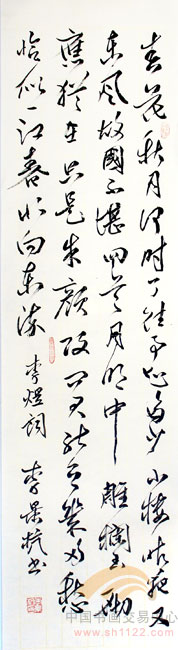 春花秋月何時了往事知多少小樓昨夜又
東風故國不堪回首月明中雕欄玉砌
應猶在只是朱顏改問君能有幾多愁
恰似一江春水向東流 李煜詞 李景杭书
中国书画交易中心
www.sh1122.com